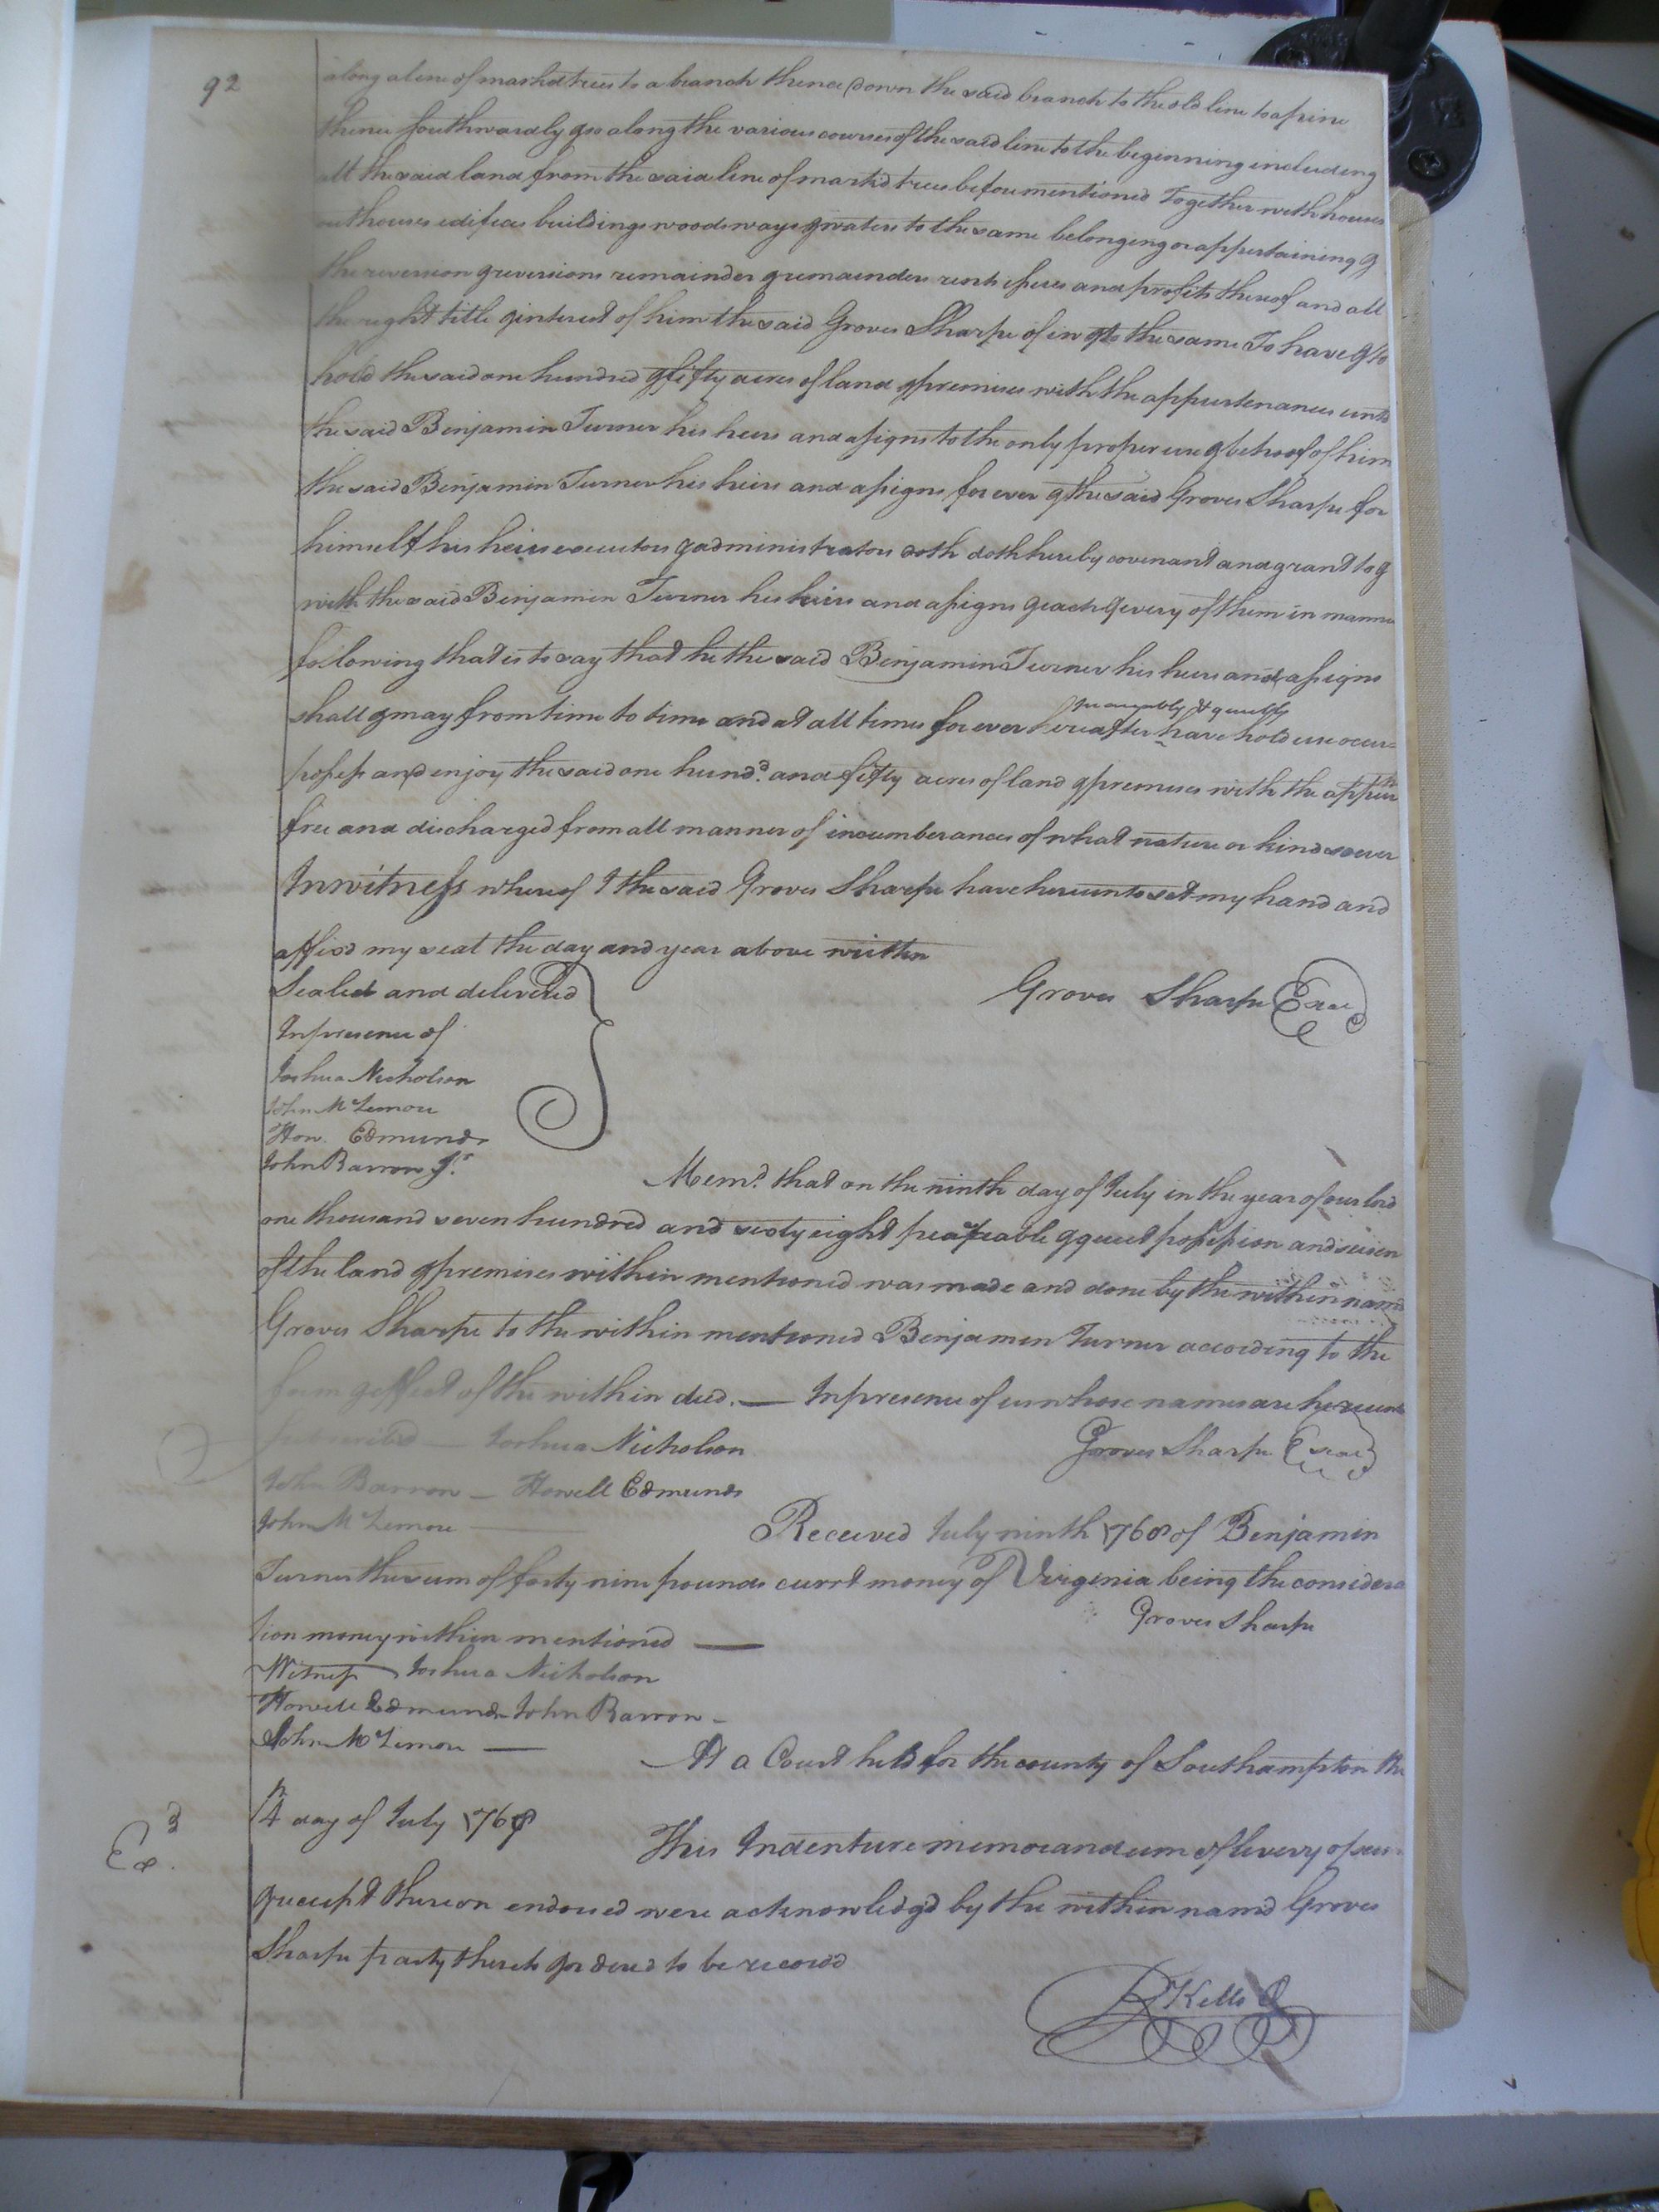 92
along a line of markd trees to a branch thence down the said branch to the old line to a pine
thence southwardly along the various courses of the said line to the beginning including
all the said land from the said line of markd trees before mentioned Together with houses
outhouses edifices buildings woods ways & waters to the same belonging or appertaining &
the reversion & reversions remainder & remainders rents issues and profits thereof and all
the right title & interest of him the said Groves Sharpe of in & to the same To have & to
hold the said one hundred & fifty acres of land & premises with the appurtenances unto
the said Benjamin Turner his heirs and assigns to the only proper use & behoof of him
the said Benjamin Turner his heirs and assigns for ever & the said Groves Sharpe for
himself his heirs executors & administrators doth doth hereby covenant and grant to &
with the said Benjamin Turner his heirs and assigns & each & every of them in manner
following that is to say that he the said Benjamin Turner his heirs and assigns
peaceably & quietly
shall & may from time to time and at all times for ever hereafter have hold use occu=
possess and enjoy the said one hund.d and fifty acres of land & premises with the appurts
free and discharged from all manner of incumberances of what nature or kind soever
In witness whereof I the said Groves Sharpe have hereunto set my hand and
affixd my seal the day and year above written
Sealed and delivered
Groves Sharpe Seal
In presence of
Joshua Nicholson
John McLemore
How. Edmunds
John Barrow Jr.
Mem.d that on the ninth day of July in the year of our lord
one thousand seven hundred and sixty eight peaceable & quiet possession and seisen
of the land & premises within mentioned was made and done by the within named
Groves Sharpe to the within mentioned Benjamin Turner according to the
form & effect of the within deed. — In presence of us whose names are hereunto
subscribed — Joshua Nicholson
Groves Sharpe Seal
John Barrow — Howell Edmunds
John McLemore —
Received July ninth 1768 of Benjamin
Turner the sum of forty nine pounds currt money of Virginia being the considera
tion money within mentioned —
Groves Sharpe
Witness Joshua Nicholson
Howell Edmunds John Barrow —
John McLemore —
At a Court held for the county of Southampton the
14 day of July 1768
This Indenture memorandum of livery of seis
Ex.d
& receipt thereon endorsed were acknowledgd by the within namd Groves
Sharpe party thereto & ordered to be recordd
R Kello